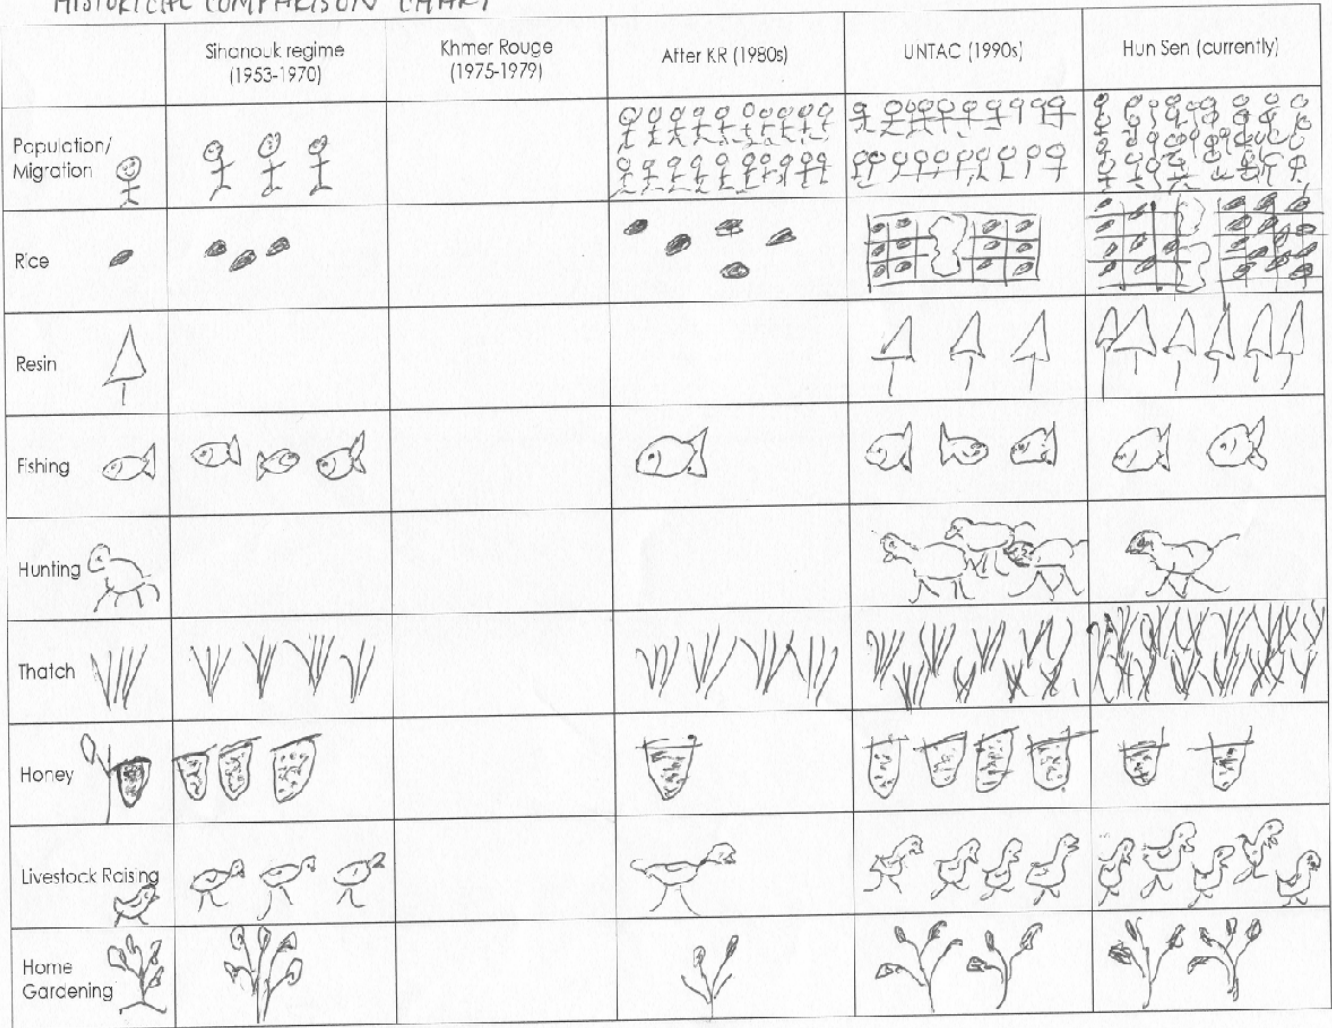 HISTORICAL COMPARISON CHART
Sihanouk regime
(1953-1970)
Khmer Rouge
(1975-1979)
After KR (1980s)
UNTAC (1990s)
Hun Sen (currently)
Population/
Migration
Rice
Resin
Fishing
Hunting
Thatch
Honey
Livestock Raising
Home
Gardening